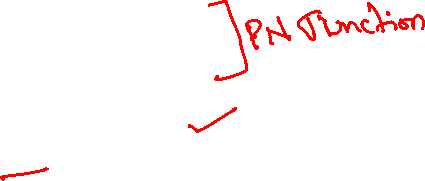 PN Junction